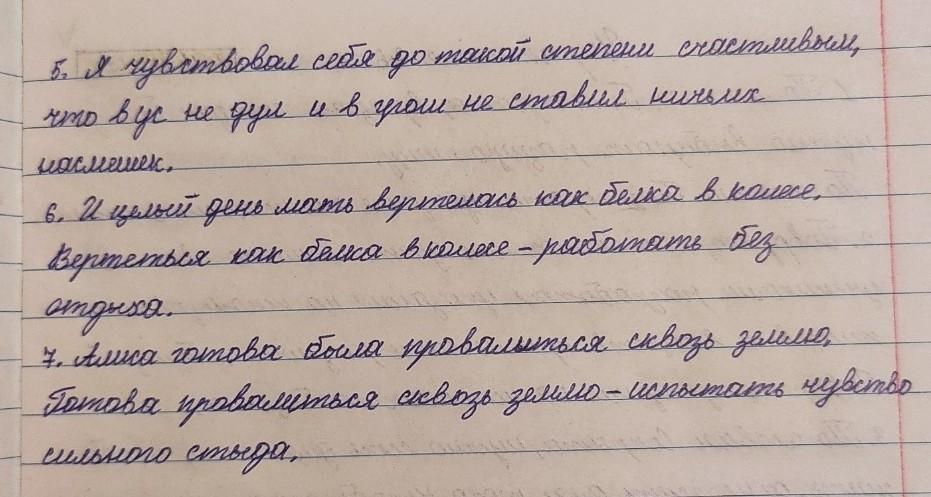 5. Я чувствовал себя до такой степени счастливым,
что в ус не дул и в грош не ставил ничьих
насмешек.
6. И целый день мать вертелась как белка в колесе.
Вертеться как белка в колесе – работать без
отдыха.
7. Алиса готова была провалиться сквозь землю.
Готова провалиться сквозь землю – испытать чувство
сильного стыда.